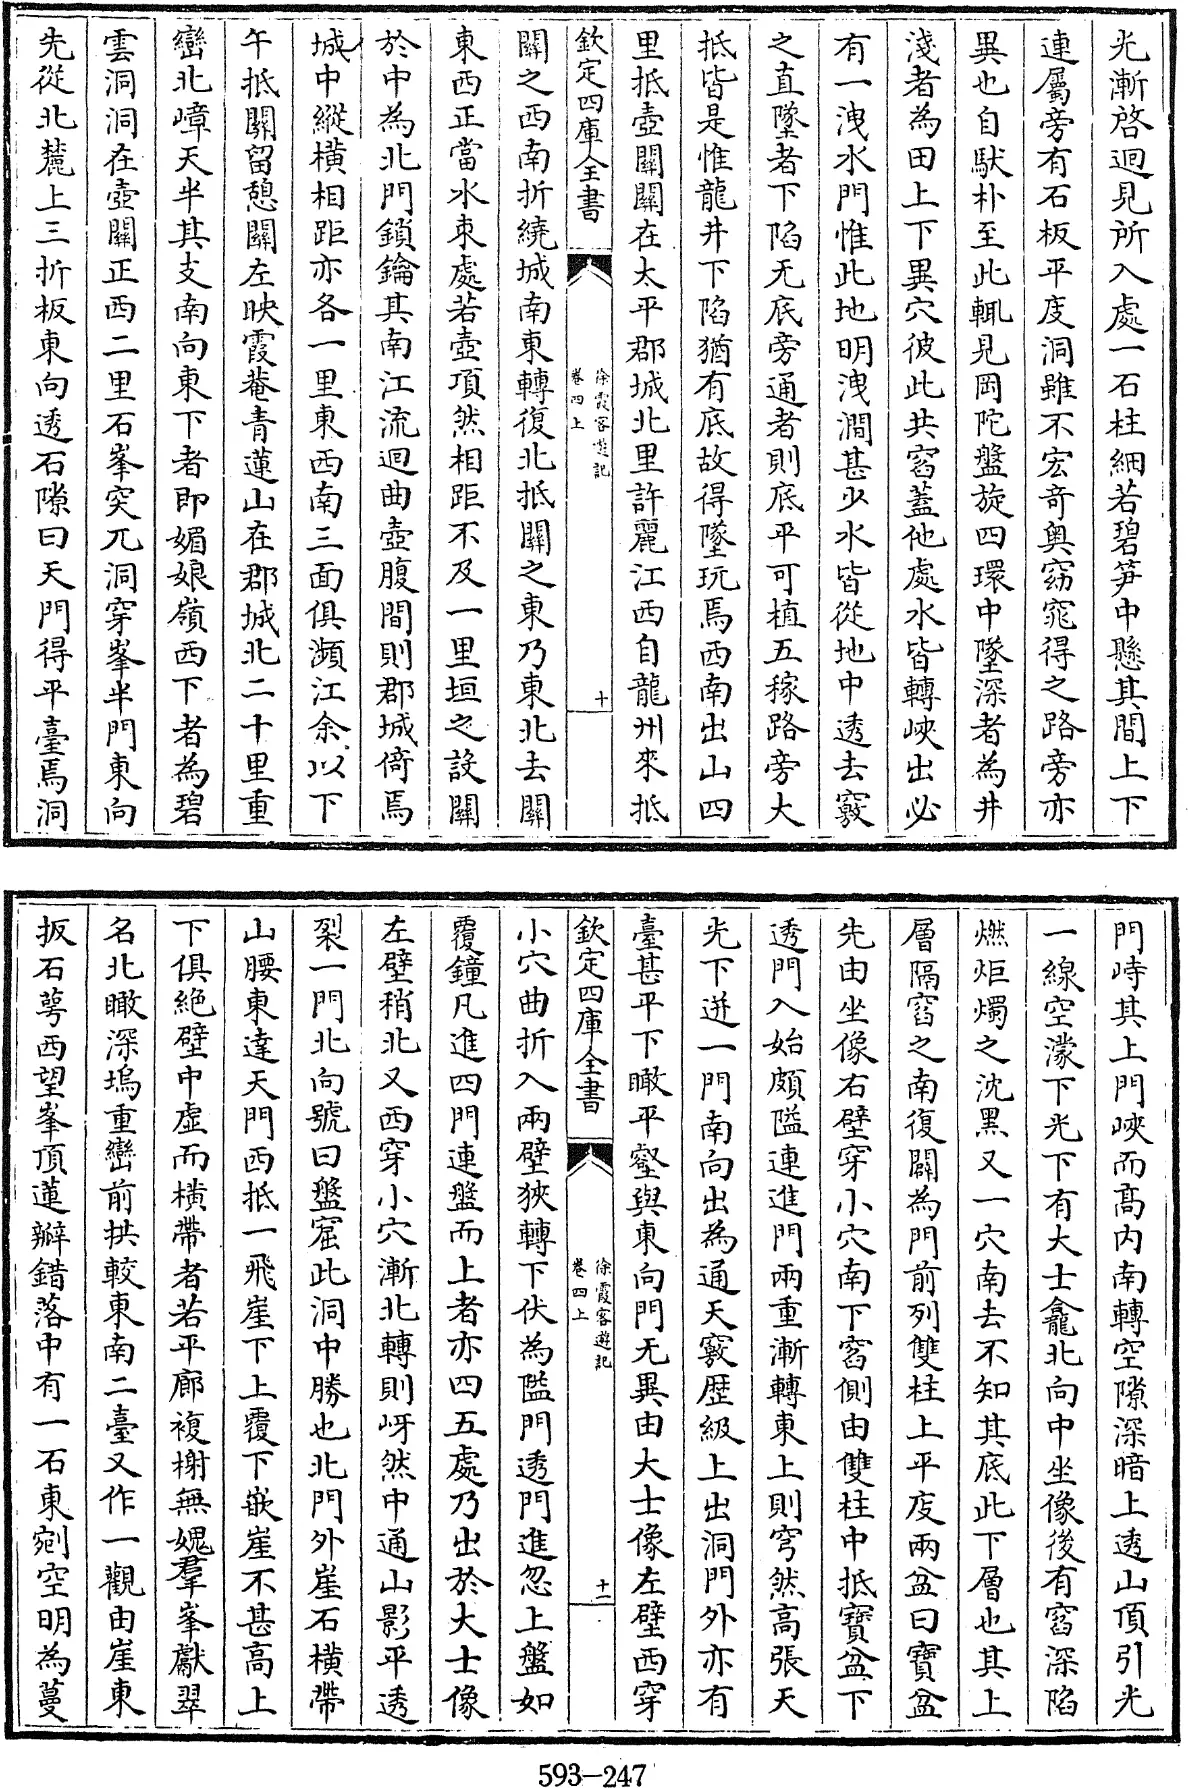 光漸啓迴見所入處一石柱細若碧笋中懸其間上下
連屬旁有石板平庋洞雖不宏竒奥窈窕得之路旁亦
異也自馱朴至此輒見岡陀盤旋四環中墜深者為井
淺者為田上下異穴彼此共窞蓋他處水皆轉峽出必
有一洩水門惟此地明洩澗甚少水皆從地中透去竅
之直墜者下陷无底旁通者則底平可植五稼路旁大
抵皆是惟龍井下陷猶有底故得墜玩焉西南出山四
里抵壺關關在太平郡城北里許麗江西自龍州來抵
欽定四庫全書
徐霞客遊記
卷四上
十
關之西南折繞城南東轉復北抵關之東乃東北去關
東西正當水束處若壺項然相距不及一里垣之設關
於中為北門鎖鑰其南江流迴曲壺腹間則郡城倚焉
城中縱橫相距亦各一里東西南三面俱瀕江余以下
午抵關留憩關左映霞菴青蓮山在郡城北二十里重
巒北嶂天半其支南向東下者即媚娘嶺西下者為碧
雲洞洞在壺關正西二里石峯突兀洞穿峯半門東向
先從北麓上三折板東向透石隙曰天門得平臺焉洞
門峙其上門峽而髙内南轉空隙深暗上透山頂引光
一線空濛下光下有大士龕北向中坐像後有窞深陷
燃炬燭之沈黑又一穴南去不知其底此下層也其上
層隔窞之南復闢為門前列雙柱上平庋兩盆曰寶盆
先由坐像右壁穿小穴南下窞側由雙柱中抵寶盆下
透門入始頗隘連進門兩重漸轉東上則穹然高張天
光下迸一門南向出為通天竅歴級上出洞門外亦有
臺甚平下瞰平壑與東向門无異由大士像左壁西穿
欽定四庫全書
徐霞客遊記
卷四上
十一
小穴曲折入兩壁狹轉下伏為隘門透門進忽上盤如
覆鐘凡進四門連盤而上者亦四五處乃出於大士像
左壁稍北又西穿小穴漸北轉則呀然中通山影平透
裂一門北向號曰盤窟此洞中勝也北門外崖石橫帶
山腰東達天門西抵一飛崖下上覆下嵌崖不甚高上
下俱絶壁中虛而橫帶者若平廊複榭無媿羣峯獻翠
名北瞰深塢重巒前拱較東南二臺又作一觀由崖東
扳石萼西望峯頂蓮瓣錯落中有一石東剜空明為蔓
593—247